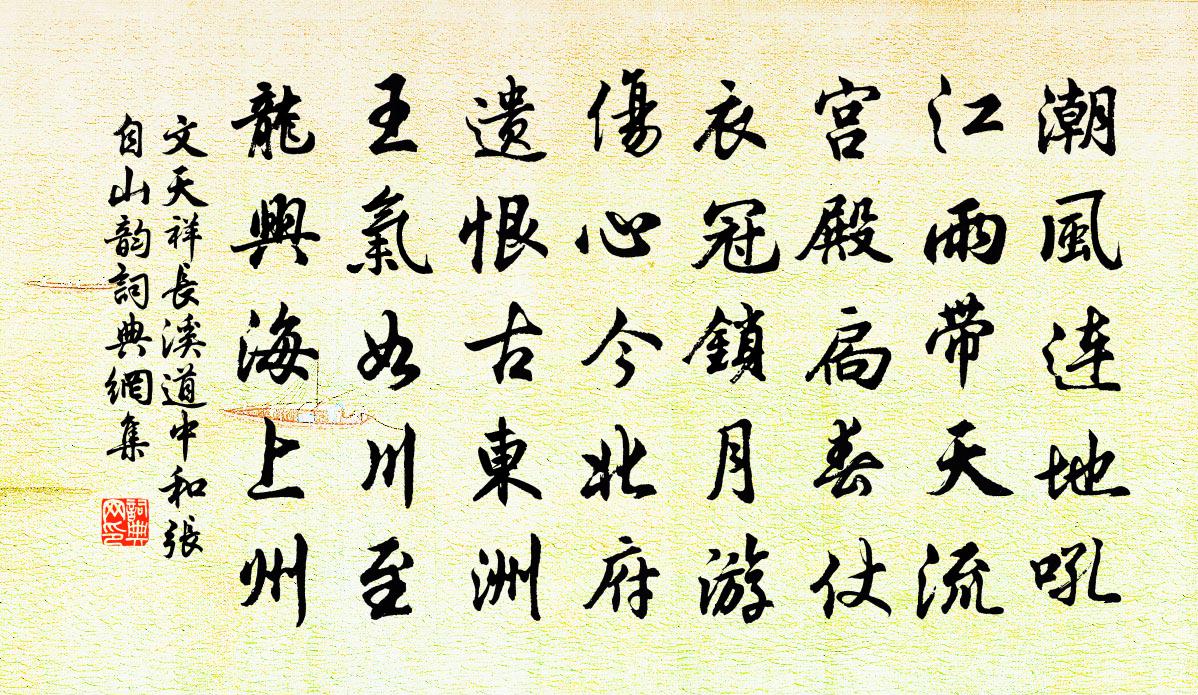 潮風連地吼
江雨帶天流
宮殿扃春仗
衣冠鎖月游
傷心今北府
遺恨古東洲
王氣如川至
龍興海上州
文天祥長溪道中和張
自山韵詞典網集
詞典
网印